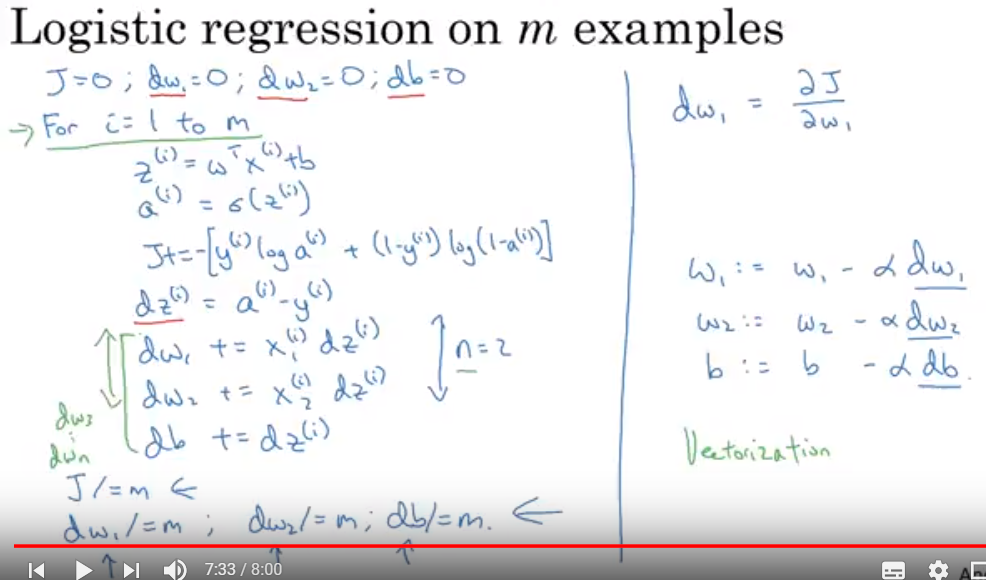 Logistic regression on m examples
J=0 ; dw₁=0 ; dw₂=0 ; db=0
→ For i = 1 to m
z⁽ⁱ⁾ = wᵀx⁽ⁱ⁾+b
a⁽ⁱ⁾ = σ(z⁽ⁱ⁾)
J+=-[y⁽ⁱ⁾ log a⁽ⁱ⁾ + (1-y⁽ⁱ⁾) log(1-a⁽ⁱ⁾)]
dz⁽ⁱ⁾ = a⁽ⁱ⁾-y⁽ⁱ⁾
dw₁ += x₁⁽ⁱ⁾ dz⁽ⁱ⁾
dw₂ += x₂⁽ⁱ⁾ dz⁽ⁱ⁾
n=2
db += dz⁽ⁱ⁾
dw₃
⋮
dwₙ
J /=m ←
dw₁ /=m ; dw₂/=m ; db/=m. ←
dw₁ = ∂J/∂w₁
w₁ := w₁ - α dw₁
w₂ := w₂ - α dw₂
b := b - α db.
Vectorization
7:33 / 8:00